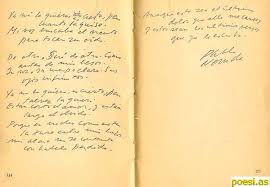 Ya no la quiero, es cierto, pero
cuanto la quise.
Mi voz buscaba el viento
para tocar su oído.
De otro. Será de otro. Como
antes de mis besos.
Su voz, su cuerpo claro. Sus
ojos infinitos.
Ya no la quiero, es cierto, pero
tal vez la quiero.
Es tan corto el amor, y es tan
largo el olvido.
Porque en noches como esta
la tuve entre mis
mi alma no se contenta
con haberla perdido
Aunque este sea el último
dolor que ella me causa,
y estos sean los últimos versos
que yo le escribo.
Pablo
Neruda
poesi.as